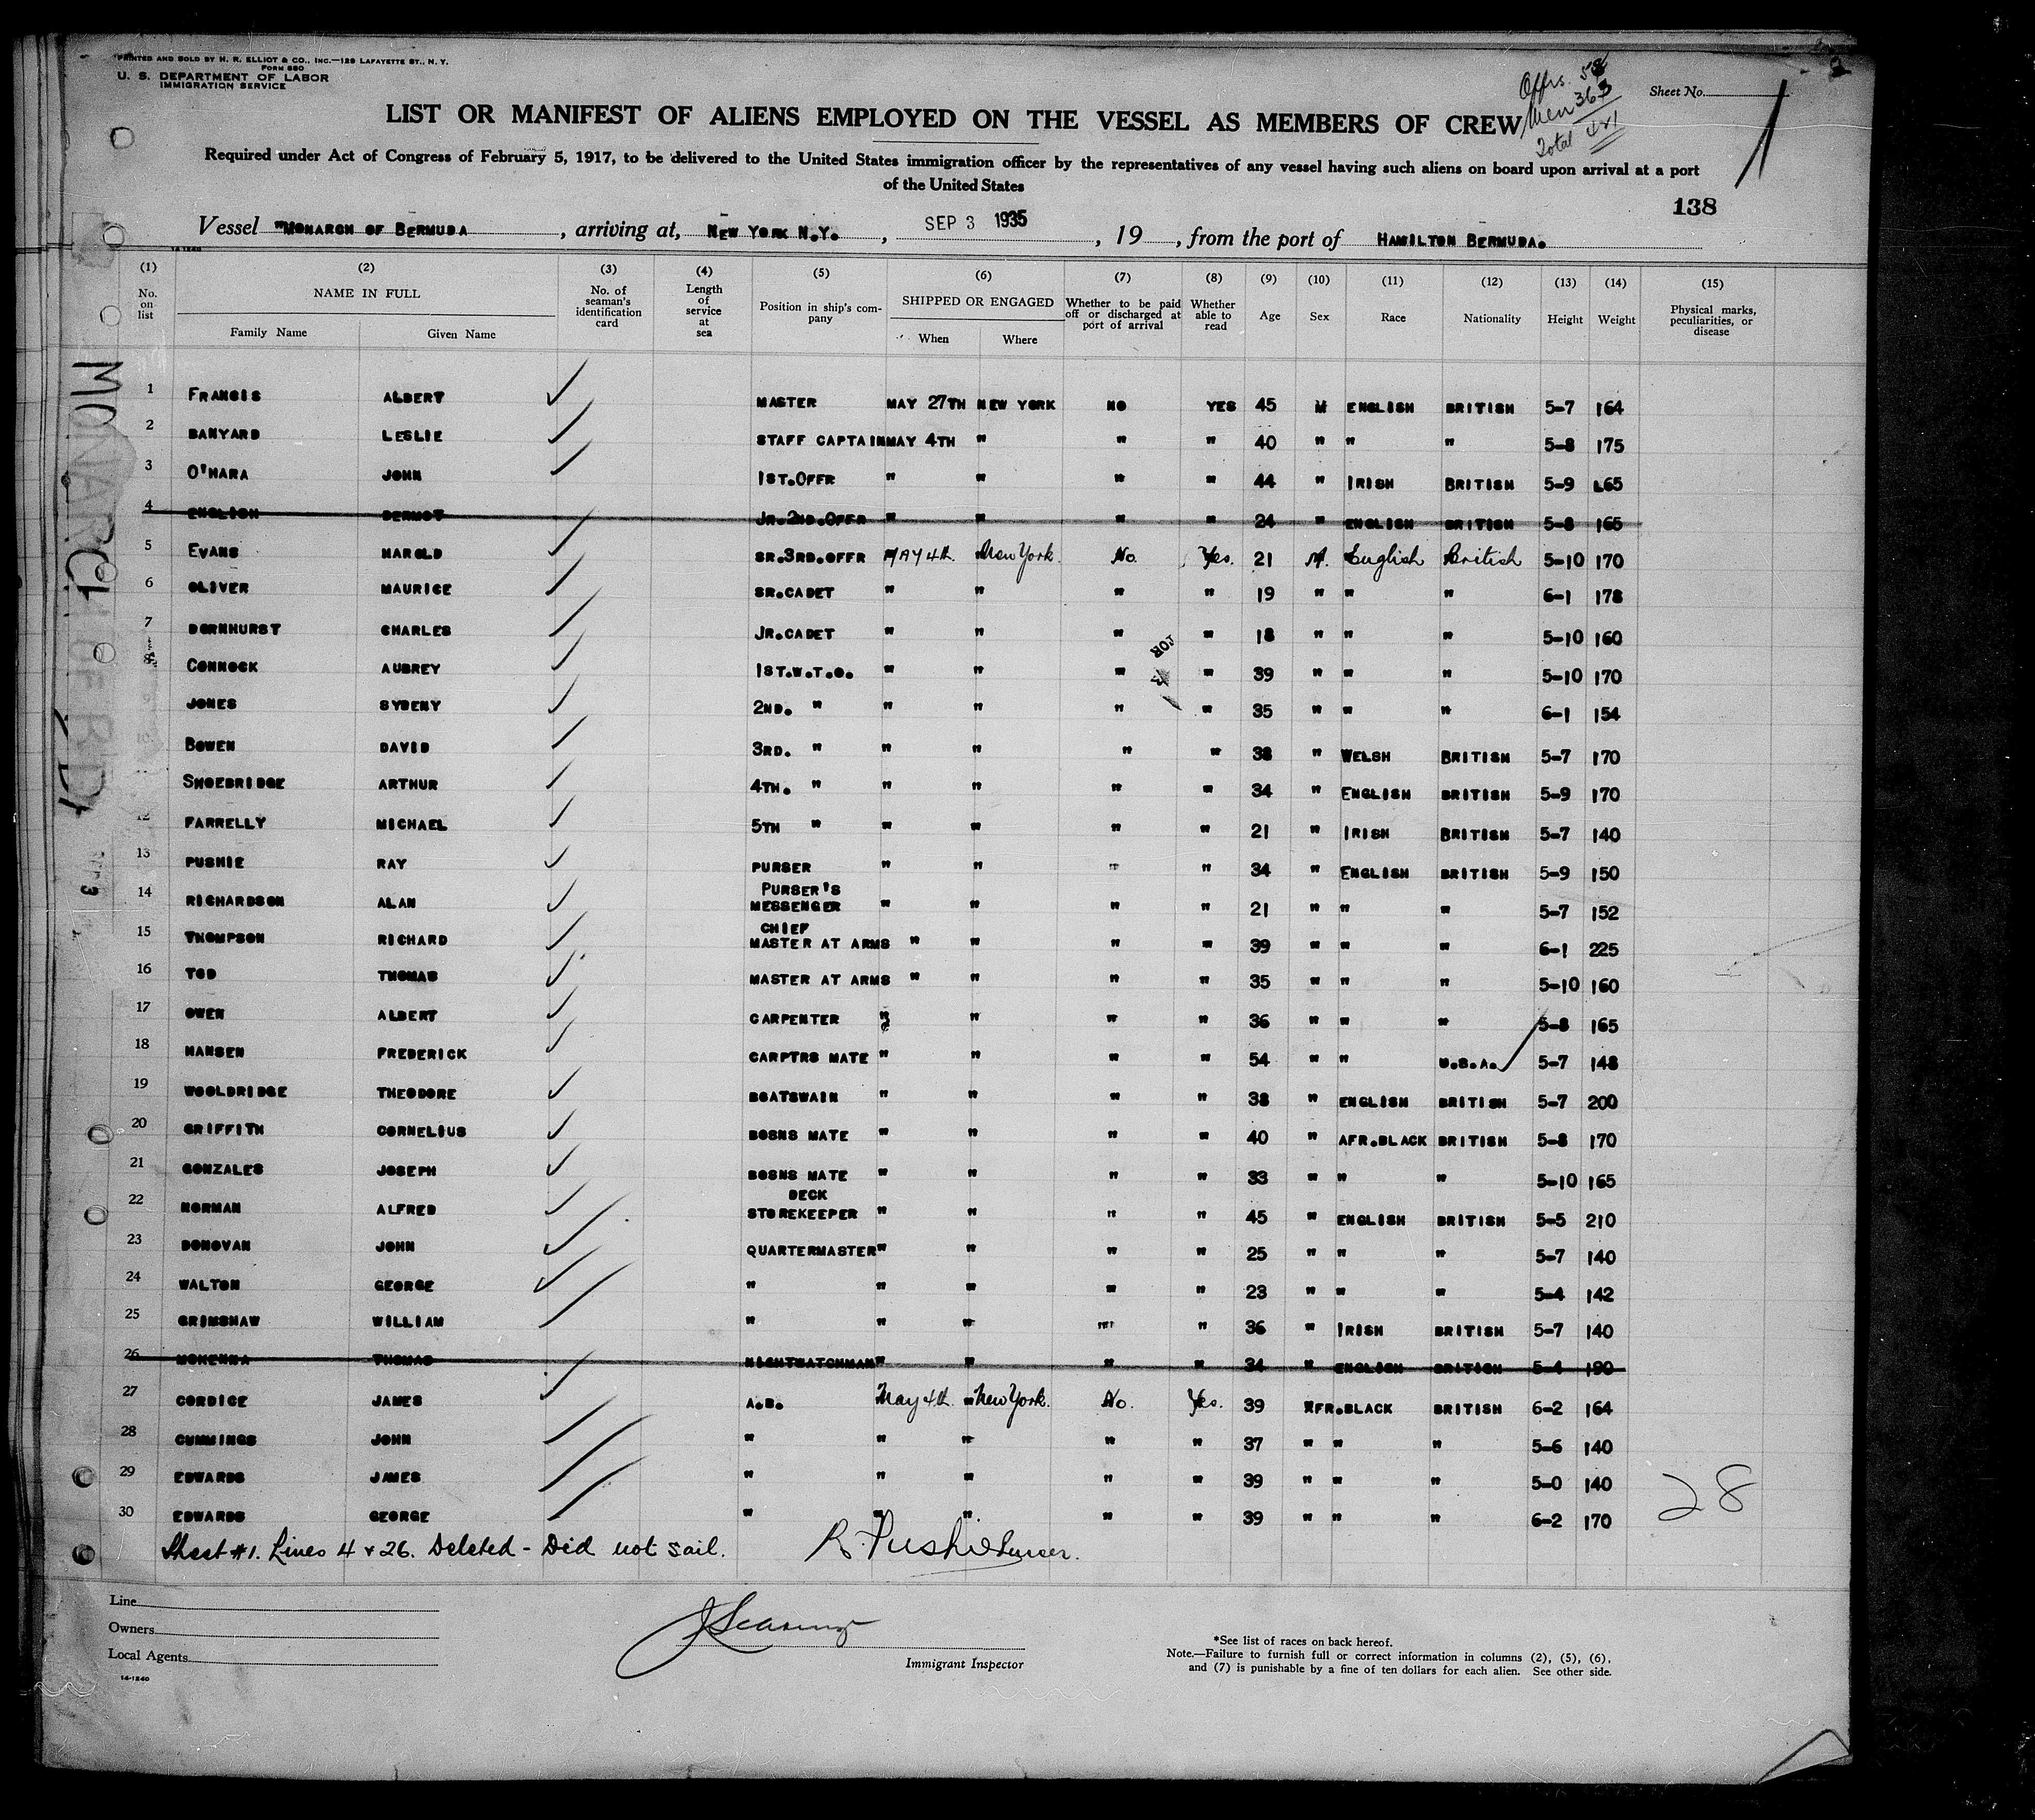 PRINTED AND SOLD BY H. R. ELLIOT & CO., INC.—129 LAFAYETTE ST., N. Y.
FORM 680
U. S. DEPARTMENT OF LABOR
IMMIGRATION SERVICE
Offrs. 58
Men 363
Total 421
Sheet No.
LIST OR MANIFEST OF ALIENS EMPLOYED ON THE VESSEL AS MEMBERS OF CREW
Required under Act of Congress of February 5, 1917, to be delivered to the United States immigration officer by the representatives of any vessel having such aliens on board upon arrival at a port
of the United States
138
Vessel "MONARCH OF BERMUDA, arriving at, NEW YORK N.Y., SEP 3 1935, 19, from the port of HAMILTON BERMUDA.
14-1240
(1) (2) (3) (4) (5) (6) (7) (8) (9) (10) (11) (12) (13) (14) (15)
No. on list NAME IN FULL Family Name Given Name No. of seaman's identification card Length of service at sea Position in ship's company SHIPPED OR ENGAGED When Where Whether to be paid off or discharged at port of arrival Whether able to read Age Sex Race Nationality Height Weight Physical marks, peculiarities, or disease
1 FRANCIS ALBERT MASTER MAY 27TH NEW YORK NO YES 45 M ENGLISH BRITISH 5-7 164
2 BANYARD LESLIE STAFF CAPTAIN MAY 4TH " " " 40 " " " 5-8 175
3 O'HARA JOHN 1ST.OFFR " " " " 44 " IRISH BRITISH 5-9 165
4 ENGLISH DERMOT JR.2ND.OFFR " " " " 24 " ENGLISH BRITISH 5-8 165
5 EVANS HAROLD SR.3RD.OFFR MAY 4th. New York. No. Yes. 21 M. English British 5-10 170
6 OLIVER MAURICE SR.CADET " " " " 19 " " " 6-1 178
7 DORNHURST CHARLES JR.CADET " " " " 18 " " " 5-10 160
8 CONNOCK AUBREY 1ST.W.T.O. " " " " 39 " " " 5-10 170
JONES SYDENY 2ND. " " " " " 35 " " " 6-1 154
10 BOWEN DAVID 3RD. " " " " " 38 " WELSH BRITISH 5-7 170
SHOEBRIDGE ARTHUR 4TH. " " " " " 34 " ENGLISH BRITISH 5-9 170
12 FARRELLY MICHAEL 5TH " " " " " 21 " IRISH BRITISH 5-7 140
13 PUSHIE RAY PURSER " " " " 34 " ENGLISH BRITISH 5-9 150
14 RICHARDSON ALAN PURSER'S MESSENGER " " " " 21 " " " 5-7 152
15 THOMPSON RICHARD CHIEF MASTER AT ARMS " " " " 39 " " " 6-1 225
16 TOD THOMAS MASTER AT ARMS " " " " 35 " " " 5-10 160
17 OWEN ALBERT CARPENTER " " " " 36 " " " 5-8 165
18 HANSEN FREDERICK CARPTRS MATE " " " " 54 " " U.S.A. 5-7 148
19 WOOLDRIDGE THEODORE BOATSWAIN " " " " 38 " ENGLISH BRITISH 5-7 200
20 GRIFFITH CORNELIUS BOSNS MATE " " " " 40 " AFR.BLACK BRITISH 5-8 170
21 GONZALES JOSEPH BOSNS MATE " " " " 33 " " " 5-10 165
22 NORMAN ALFRED DECK STOREKEEPER " " " " 45 " ENGLISH BRITISH 5-5 210
23 DONOVAN JOHN QUARTERMASTER " " " " 25 " " " 5-7 140
24 WALTON GEORGE " " " " " 23 " " " 5-4 142
25 GRIMSHAW WILLIAM " " " " " 36 " IRISH BRITISH 5-7 140
26 MCKENNA THOMAS NIGHTWATCHMAN " " " " 34 " ENGLISH BRITISH 5-4 190
27 CORDICE JAMES A.B. May 4th. New York. No. Yes. 39 AFR.BLACK BRITISH 6-2 164
28 CUMMINGS JOHN " " " " " 37 " " " 5-6 140
29 EDWARDS JAMES " " " " " 39 " " " 5-0 140
30 EDWARDS GEORGE " " " " " 39 " " " 6-2 170
28
Sheet #1. Lines 4 & 26. Deleted - Did not sail. R. Pushie Purser.
Line
Owners
Local Agents
14-1240
Immigrant Inspector
*See list of races on back hereof.
Note.—Failure to furnish full or correct information in columns (2), (5), (6),
and (7) is punishable by a fine of ten dollars for each alien. See other side.
MONARCH OF BDA